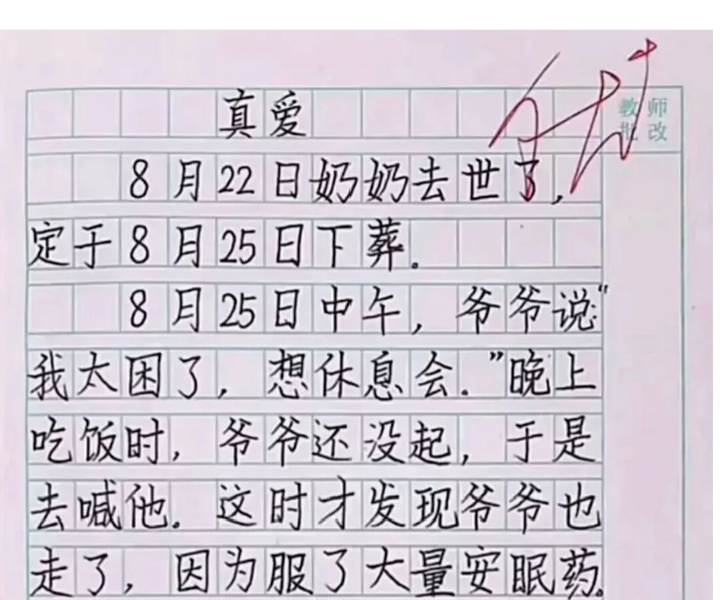 真爱
教师
批改
8月22日奶奶去世了,
定于8月25日下葬.
8月25日中午,爷爷说:"
我太困了,想休息会."晚上
吃饭时,爷爷还没起,于是
去喊他.这时才发现爷爷也
走了,因为服了大量安眠药.